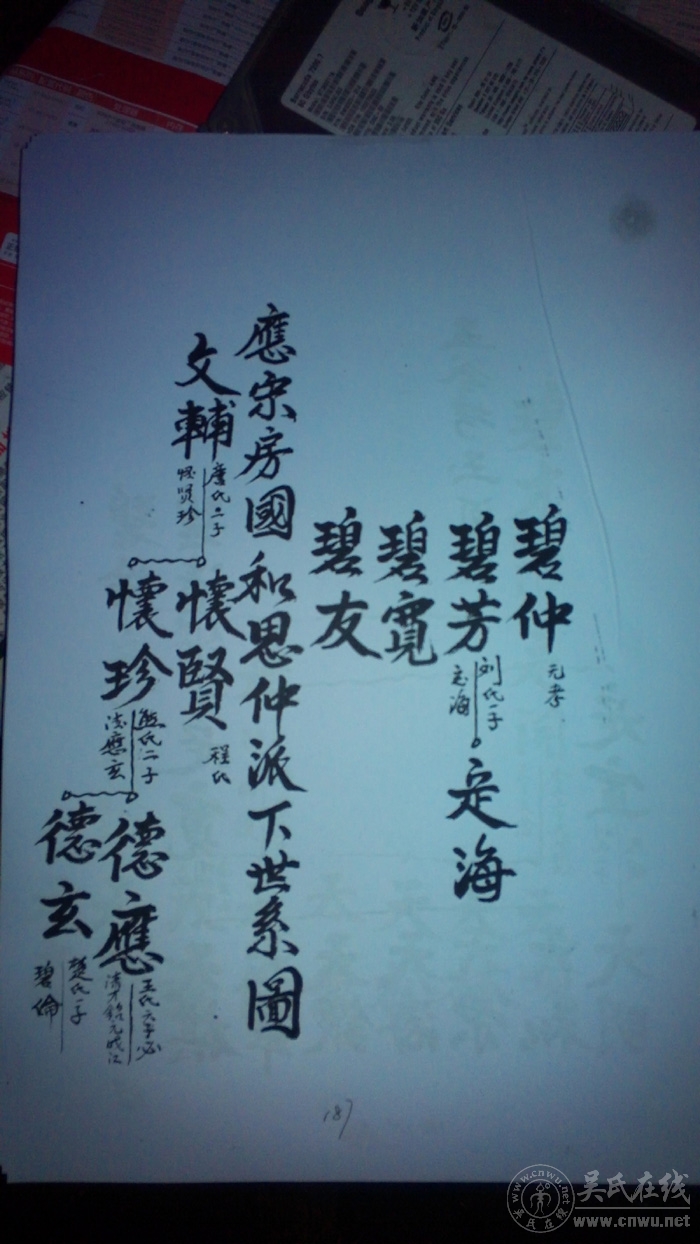 碧仲
元孝
碧芳
刘氏一子
定海
定海
碧寬
碧友
應宗房國和思仲派下世系圖
文輔
唐氏二子
懷賢珍
懷賢
程氏
懷珍
熊氏二子
德應玄
德應
王氏六子必
德玄
楚氏一子
碧倫
187
吴氏在线
www.cnwu.net